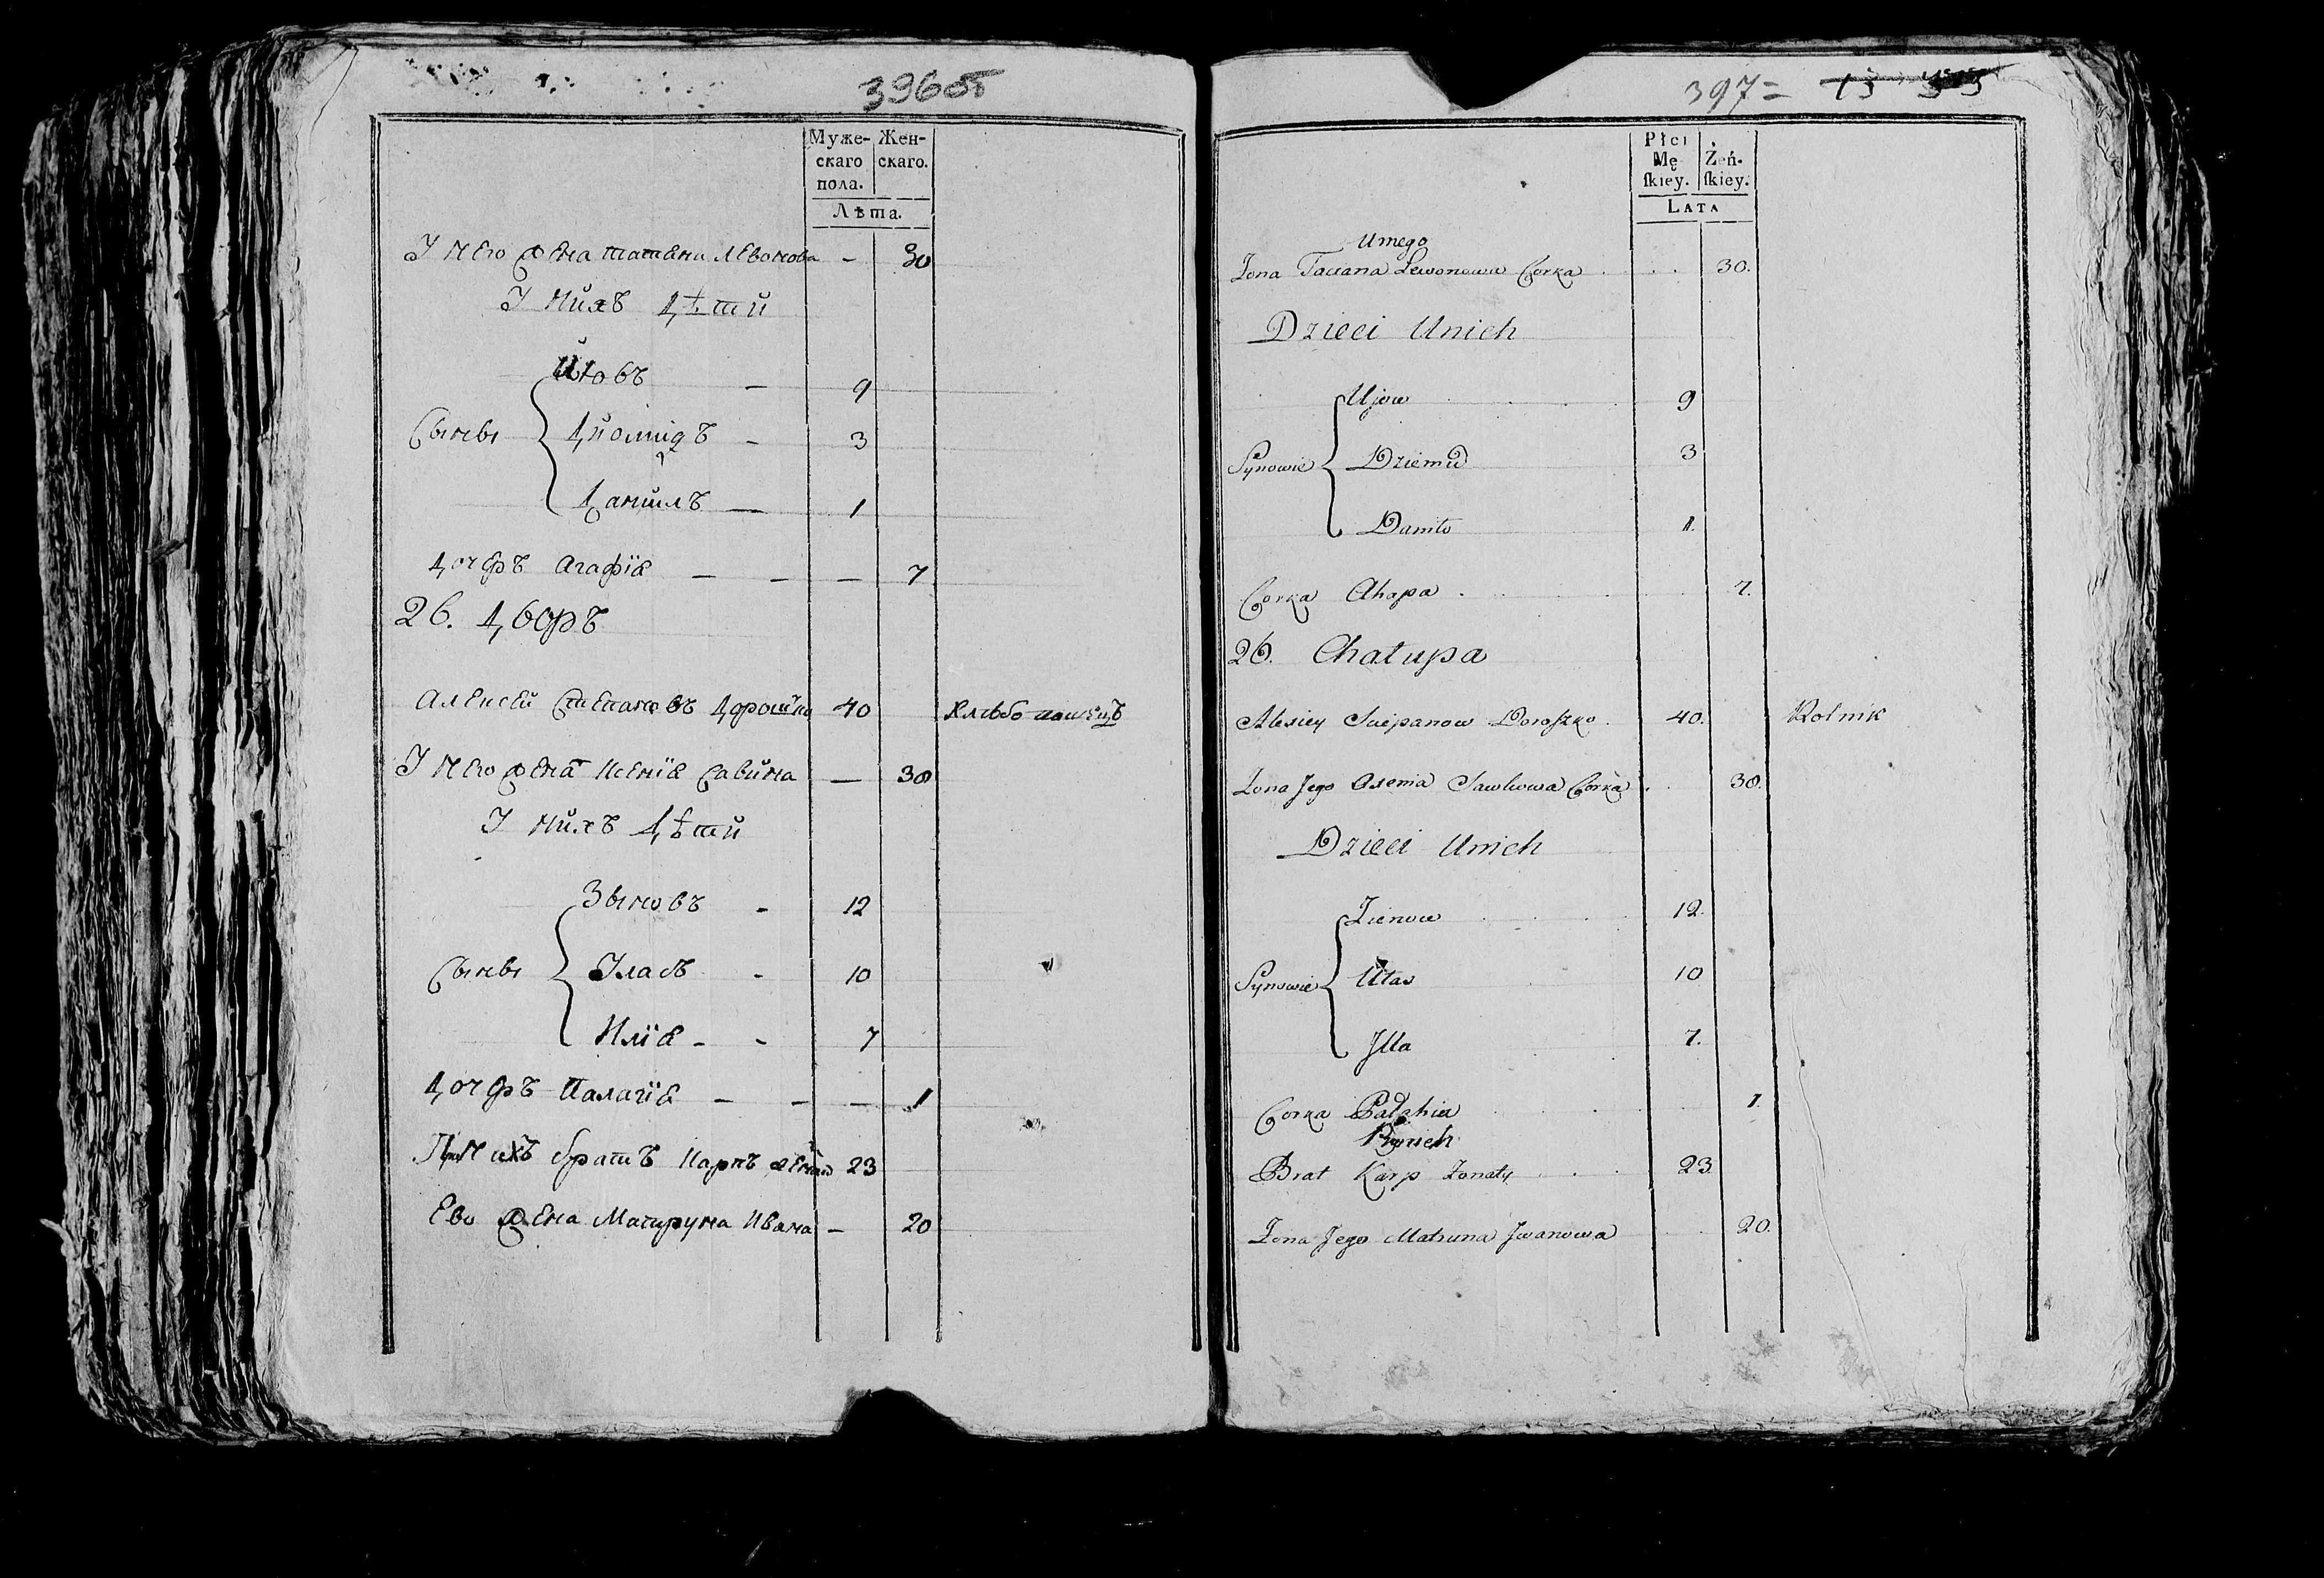 396об
Муже-
скаго
пола.
Жен-
скаго.
Лѣта.
У него жена татяна Левонова — 30
У нихъ дѣти
Иювъ — 9
Сыны
Данилъ — 1
дочръ агафія — — — 7
26. дворъ
алексей Степановъ дорошко 40 хлебопашецъ
У него жена ксенія Савина — 30
У нихъ дѣти
Зыновъ - 12
Сыны Уласъ - 10
Илія - - 7
дочръ палагія — — — 1
При нихъ братъ карпъ женатъ 23
Ево жена Матруна Ивана — 20
397 =
Płci
Mę
skiey.
Żeń-
skiey.
LATA
Uniego
Zona Taciana Lewonowa Corka . . . 30.
Dzieci Unich
Ujow 9
Synowie Dziemid 3
Daniło 1.
Corka Ahapa . 7.
26. Chałupa
Alexiey Sciepanow Doroszko . 40. Rolnik
Zona Jego Axenia Sawkowa Corka . 30.
Dzieci Unich
Zienow 12.
Synowie Ułas 10
Jlla 7.
Corka Pałahia 1.
Przynich
Brat Karp Zonaty . . 23
Zona Jego Matruna Jwanowa 20.